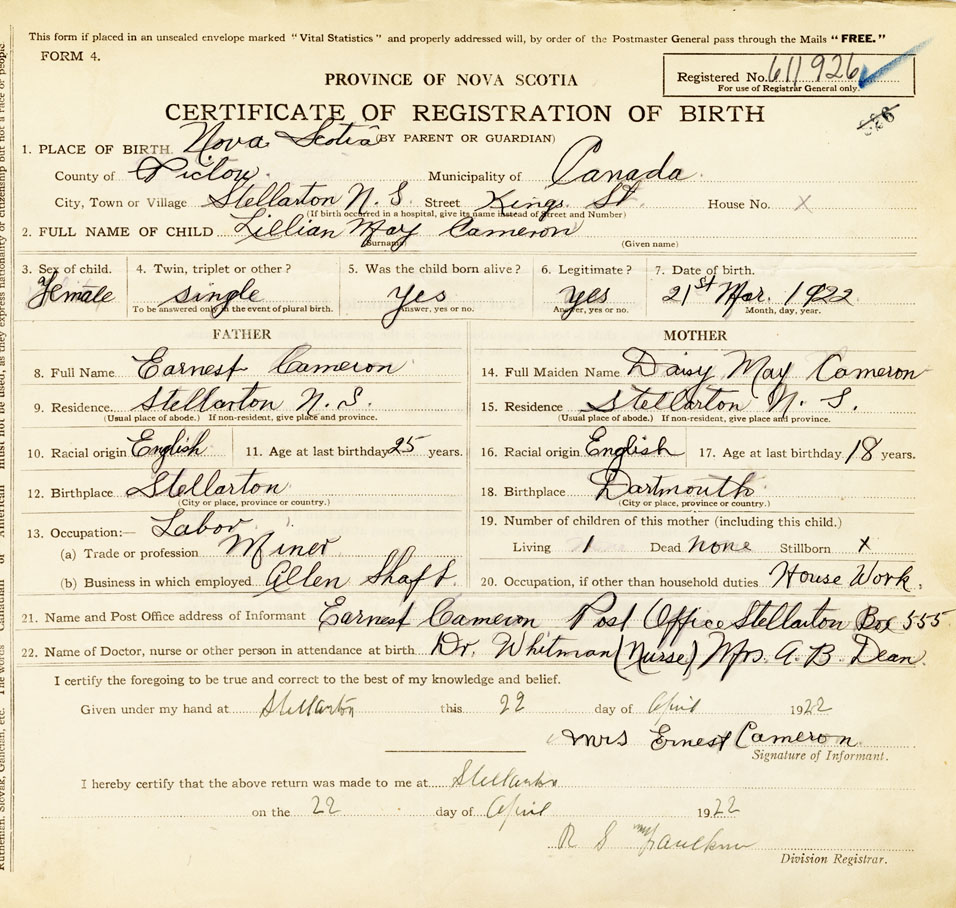 This form if placed in an unsealed envelope marked "Vital Statistics" and properly addressed will, by order of the Postmaster General pass through the Mails "FREE."
FORM 4.
PROVINCE OF NOVA SCOTIA
Registered No. 611926
For use of Registrar General only.
CERTIFICATE OF REGISTRATION OF BIRTH
(BY PARENT OR GUARDIAN)
1. PLACE OF BIRTH. Nova Scotia
County of Pictou Municipality of Canada
City, Town or Village Stellarton N. S. Street Kings St. House No. X
(If birth occurred in a hospital, give its name instead of Street and Number)
2. FULL NAME OF CHILD Lillian May Cameron
(Surname) (Given name)
3. Sex of child. 4. Twin, triplet or other? 5. Was the child born alive? 6. Legitimate? 7. Date of birth.
Female single Yes yes 21st Mar. 1922
To be answered only in the event of plural birth. Answer, yes or no. Answer, yes or no. Month, day, year.
FATHER MOTHER
8. Full Name Earnest Cameron 14. Full Maiden Name Daisy May Cameron
9. Residence. Stellarton N. S. 15. Residence Stellarton N. S.
(Usual place of abode.) If non-resident, give place and province. (Usual place of abode.) If non-resident, give place and province.
10. Racial origin English 11. Age at last birthday 25 years. 16. Racial origin English 17. Age at last birthday 18 years.
12. Birthplace Stellarton 18. Birthplace Dartmouth
(City or place, province or country.) (City or place, province or country.)
13. Occupation:— Labor 19. Number of children of this mother (including this child.)
(a) Trade or profession Miner Living 1 Dead none Stillborn x
(b) Business in which employed Allen Shaft. 20. Occupation, if other than household duties House Work.
21. Name and Post Office address of Informant Earnest Cameron Post Office Stellarton Box 555
22. Name of Doctor, nurse or other person in attendance at birth. Dr. Whitman (Nurse) Mrs. A. B. Dean.
I certify the foregoing to be true and correct to the best of my knowledge and belief.
Given under my hand at Stellarton this 22 day of April 1922
Mrs Ernest Cameron.
Signature of Informant.
I hereby certify that the above return was made to me at Stellarton
on the 22 day of April 1922
R S
Division Registrar.
Ruthenian, Slovak, Galician, etc. The words Canadian or American must not be used, as they express nationality or citizenship but not a race or people.